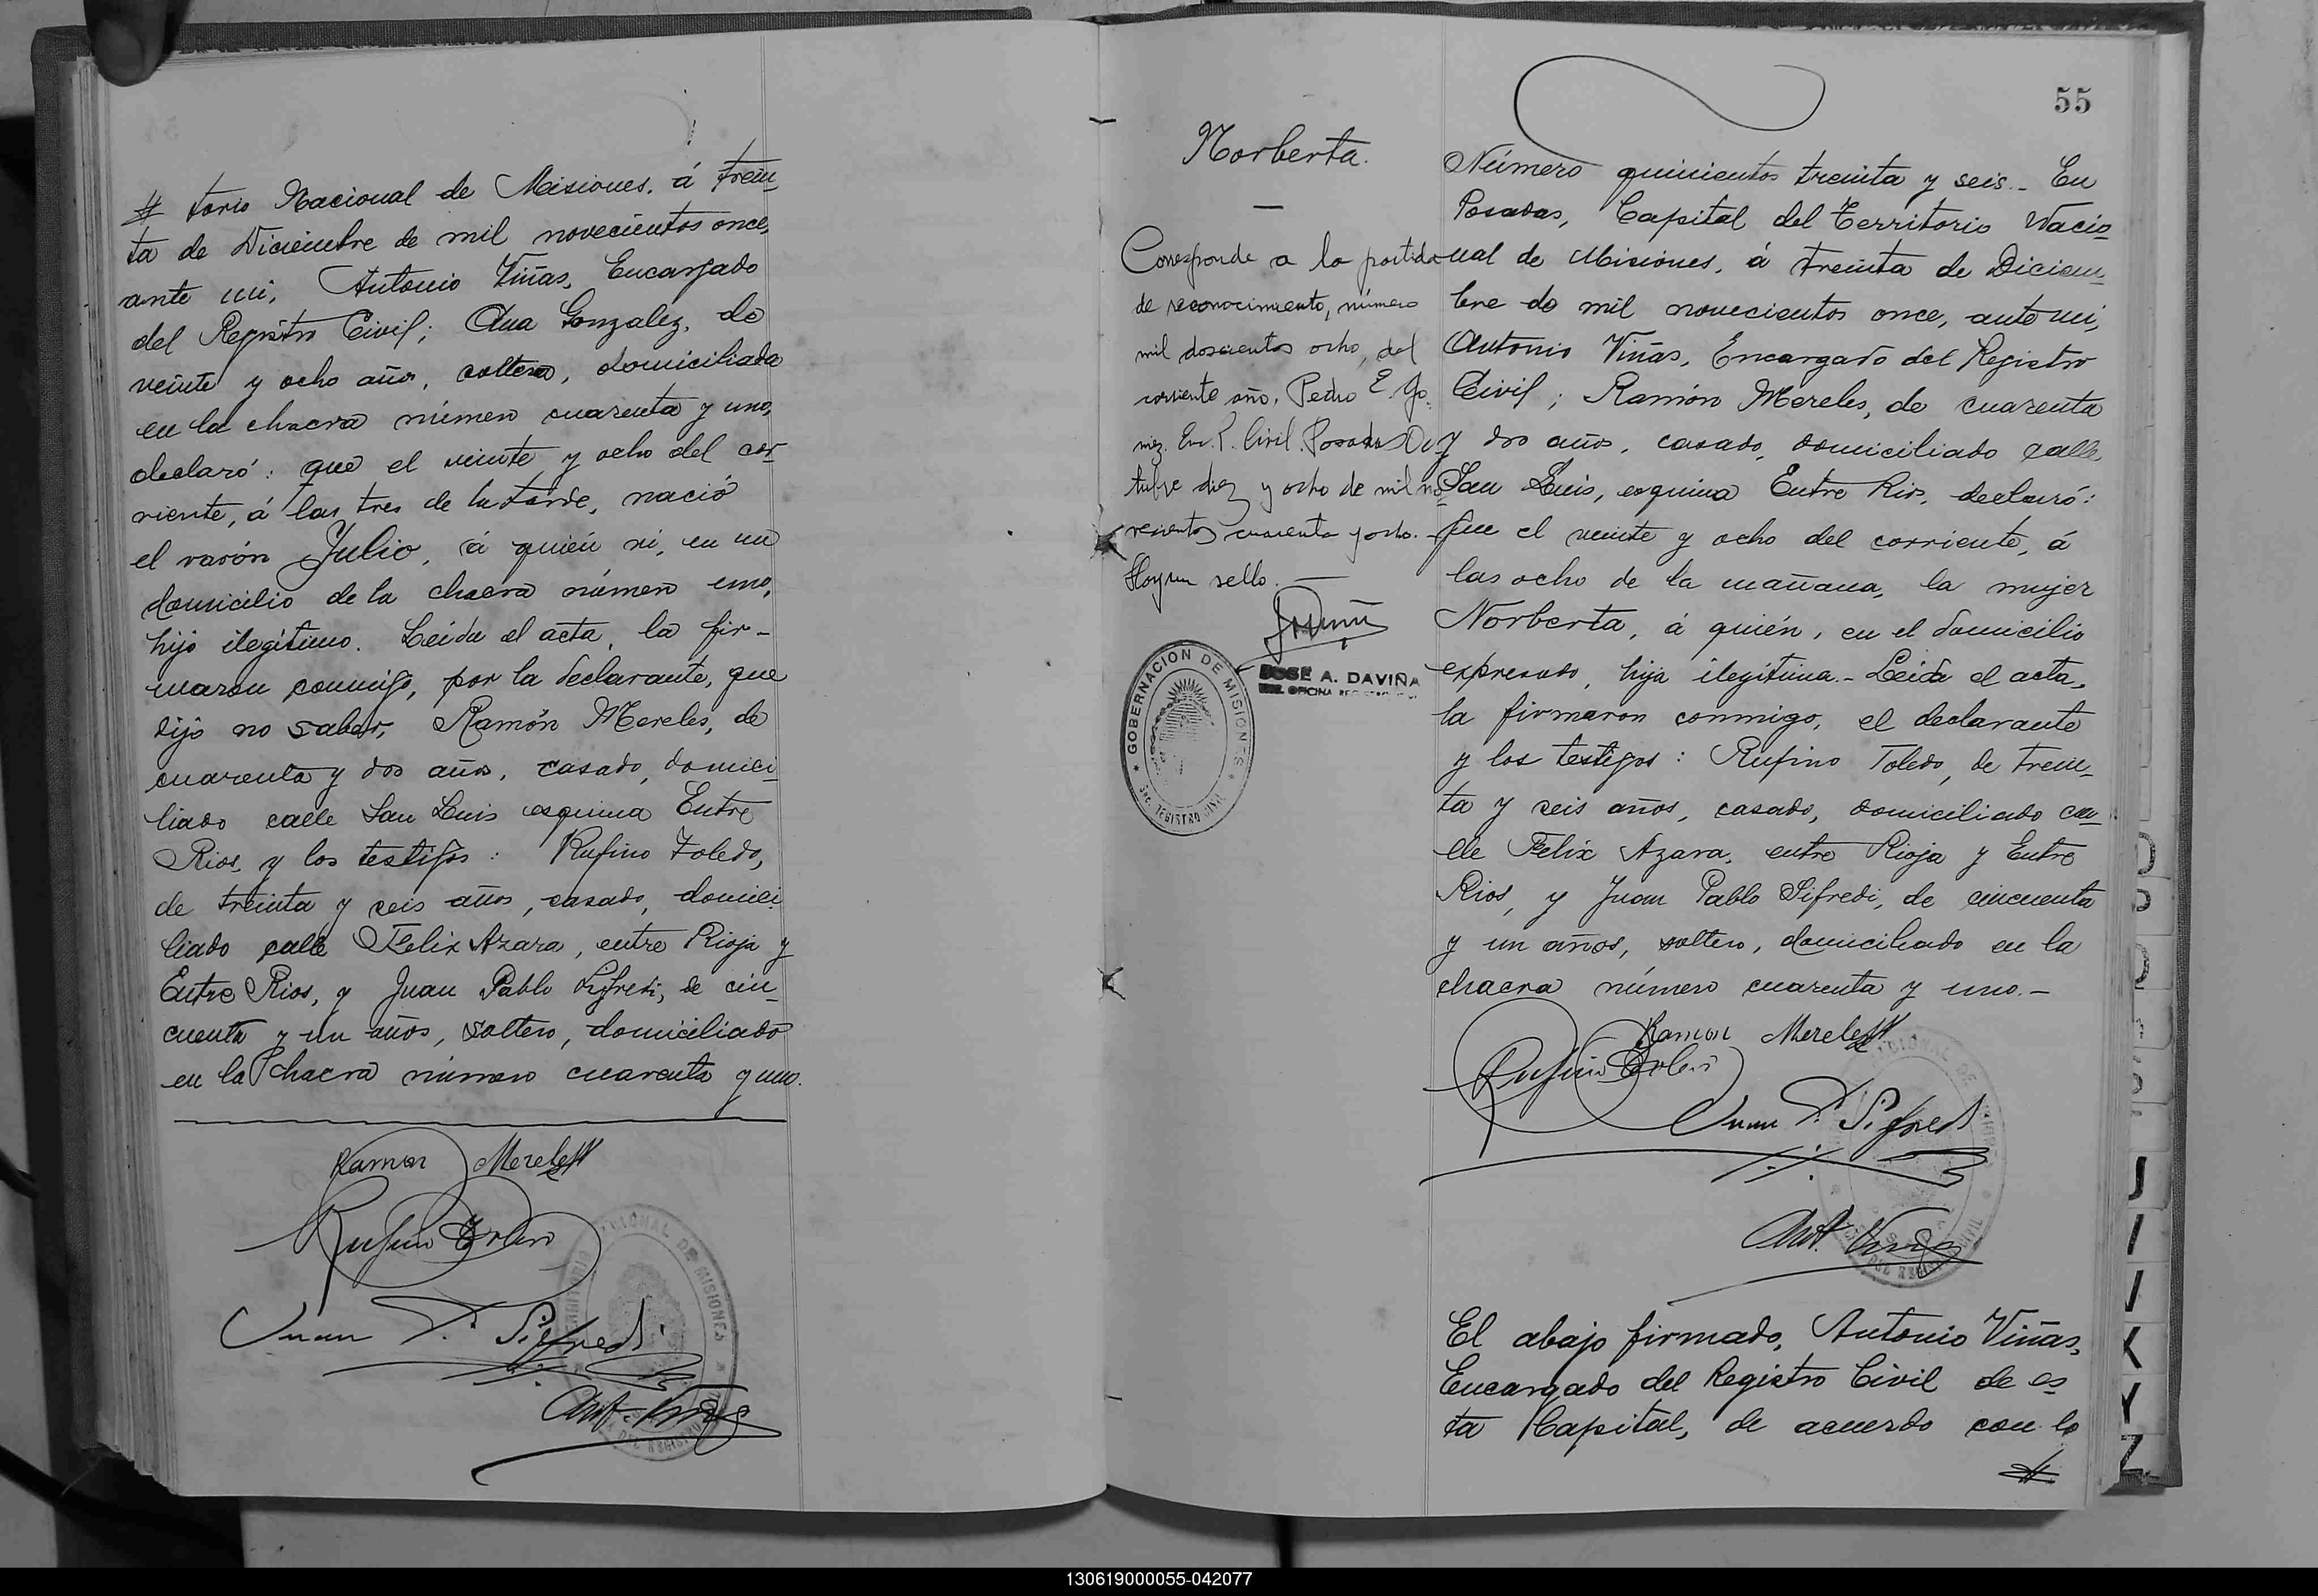 # torio Nacional de Misiones, á trein-
ta de Diciembre de mil novecientos once,
ante mi, Antonio Viñas, Encargado
del Registro Civil; Ana Gonzalez, de
veinte y ocho años, soltera, domiciliada
en la chacra número cuarenta y uno,
declaró: que el veinte y ocho del cor-
riente, á las tres de la tarde, nació
el varón Julio, á quién vi, en un
domicilio de la chacra número uno,
hijo ilegítimo. Leída el acta, la fir-
maron conmigo, por la declarante, que
dijo no saber, Ramón Mereles, de
cuarenta y dos años, casado, domici-
liado calle San Luis esquina Entre
Rios, y los testigos: Rufino Toledo,
de treinta y seis años, casado, domici-
liado calle Felix Azara, entre Rioja y
Entre Rios, y Juan Pablo Sifredi, de cin-
cuenta y un años, soltero, domiciliado
en la chacra número cuarenta y uno.
Ramon Mereles
Rufino Toledo
Juan P. Sifredi
Ant. Viñas
55
Norberta.
Corresponde a la partida
de reconocimiento, número
mil doscientos ocho, del
corriente año, Pedro E. Go-
mez. Enc. R. Civil. Posadas Oc-
tubre diez y ocho de mil no-
vecientos cuarenta y ocho.-
Hay un sello.
JOSE A. DAVIÑA
OFICINA
GOBERNACION DE MISIONES
SEC. REGISTRO CIVIL
Número quinientos treinta y seis.- En
Posadas, Capital del Territorio Nacio-
nal de Misiones, á treinta de Diciem-
bre de mil novecientos once, ante mi,
Antonio Viñas, Encargado del Registro
Civil; Ramón Mereles, de cuarenta
y dos años, casado, domiciliado calle
San Luis, esquina Entre Rios, declaró:
que el veinte y ocho del corriente, á
las ocho de la mañana, la mujer
Norberta, á quién, en el domicilio
expresado, hija ilegítima.- Leída el acta,
la firmaron conmigo, el declarante
y los testigos: Rufino Toledo, de trein-
ta y seis años, casado, domiciliado ca-
lle Felix Azara, entre Rioja y Entre
Rios, y Juan Pablo Sifredi, de cincuenta
y un años, soltero, domiciliado en la
chacra número cuarenta y uno.-
Ramon Mereles
Rufino Toledo
Juan P. Sifredi
Ant. Viñas
El abajo firmado, Antonio Viñas,
Encargado del Registro Civil de es-
ta Capital, de acuerdo con lo
#
J
K
Y
Z
130619000055-042077